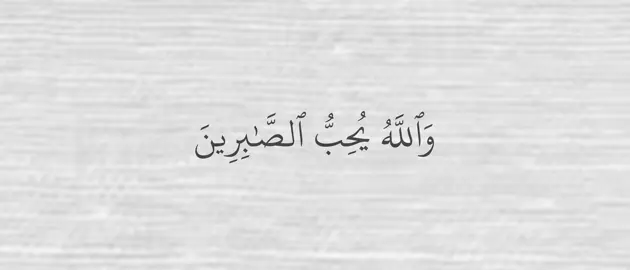 وَٱللَّهُ يُحِبُّ ٱلصَّـٰبِرِينَ